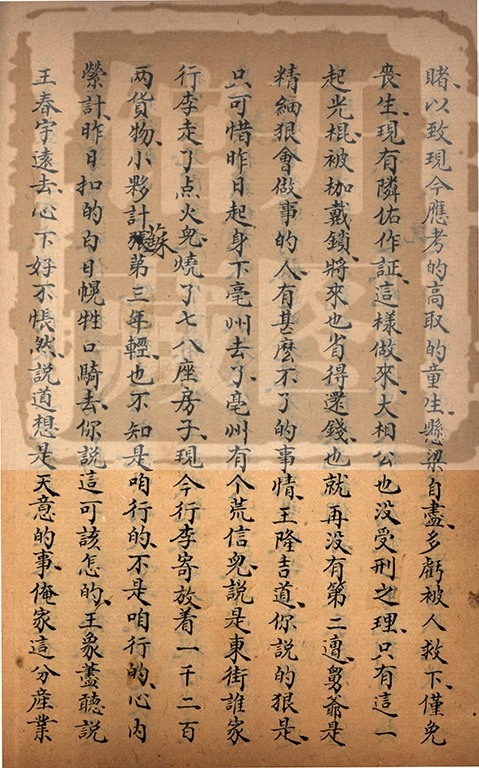 賭、以致現今應考的高取的童生、懸梁自盡、多虧被人救下、僅免
喪生、現有隣佑作証、這樣做來大相公也没受刑之理、只有這一
起光棍、被枷戴鎖、將來也省得還錢、也就再没有第二遭、舅爺是
精細狠會做事的人、有甚麼不了的事情、王隆吉道、你說的狠是、
只可惜昨日起身下亳州去了、亳州有个荒信兒、說是東街誰家
行李走了点火兒、燒了七八座房子、現今行李寄放着一千二百
两貨物、小夥計蘇第三年輕、也不知是咱行的、不是咱行的、心内
縈計、昨日扣的白日幌牲口騎去、你說這可該怎的、王象藎聽說
王春宇遠去、心下好不悵然、說道想是天意的事、俺家這分産業